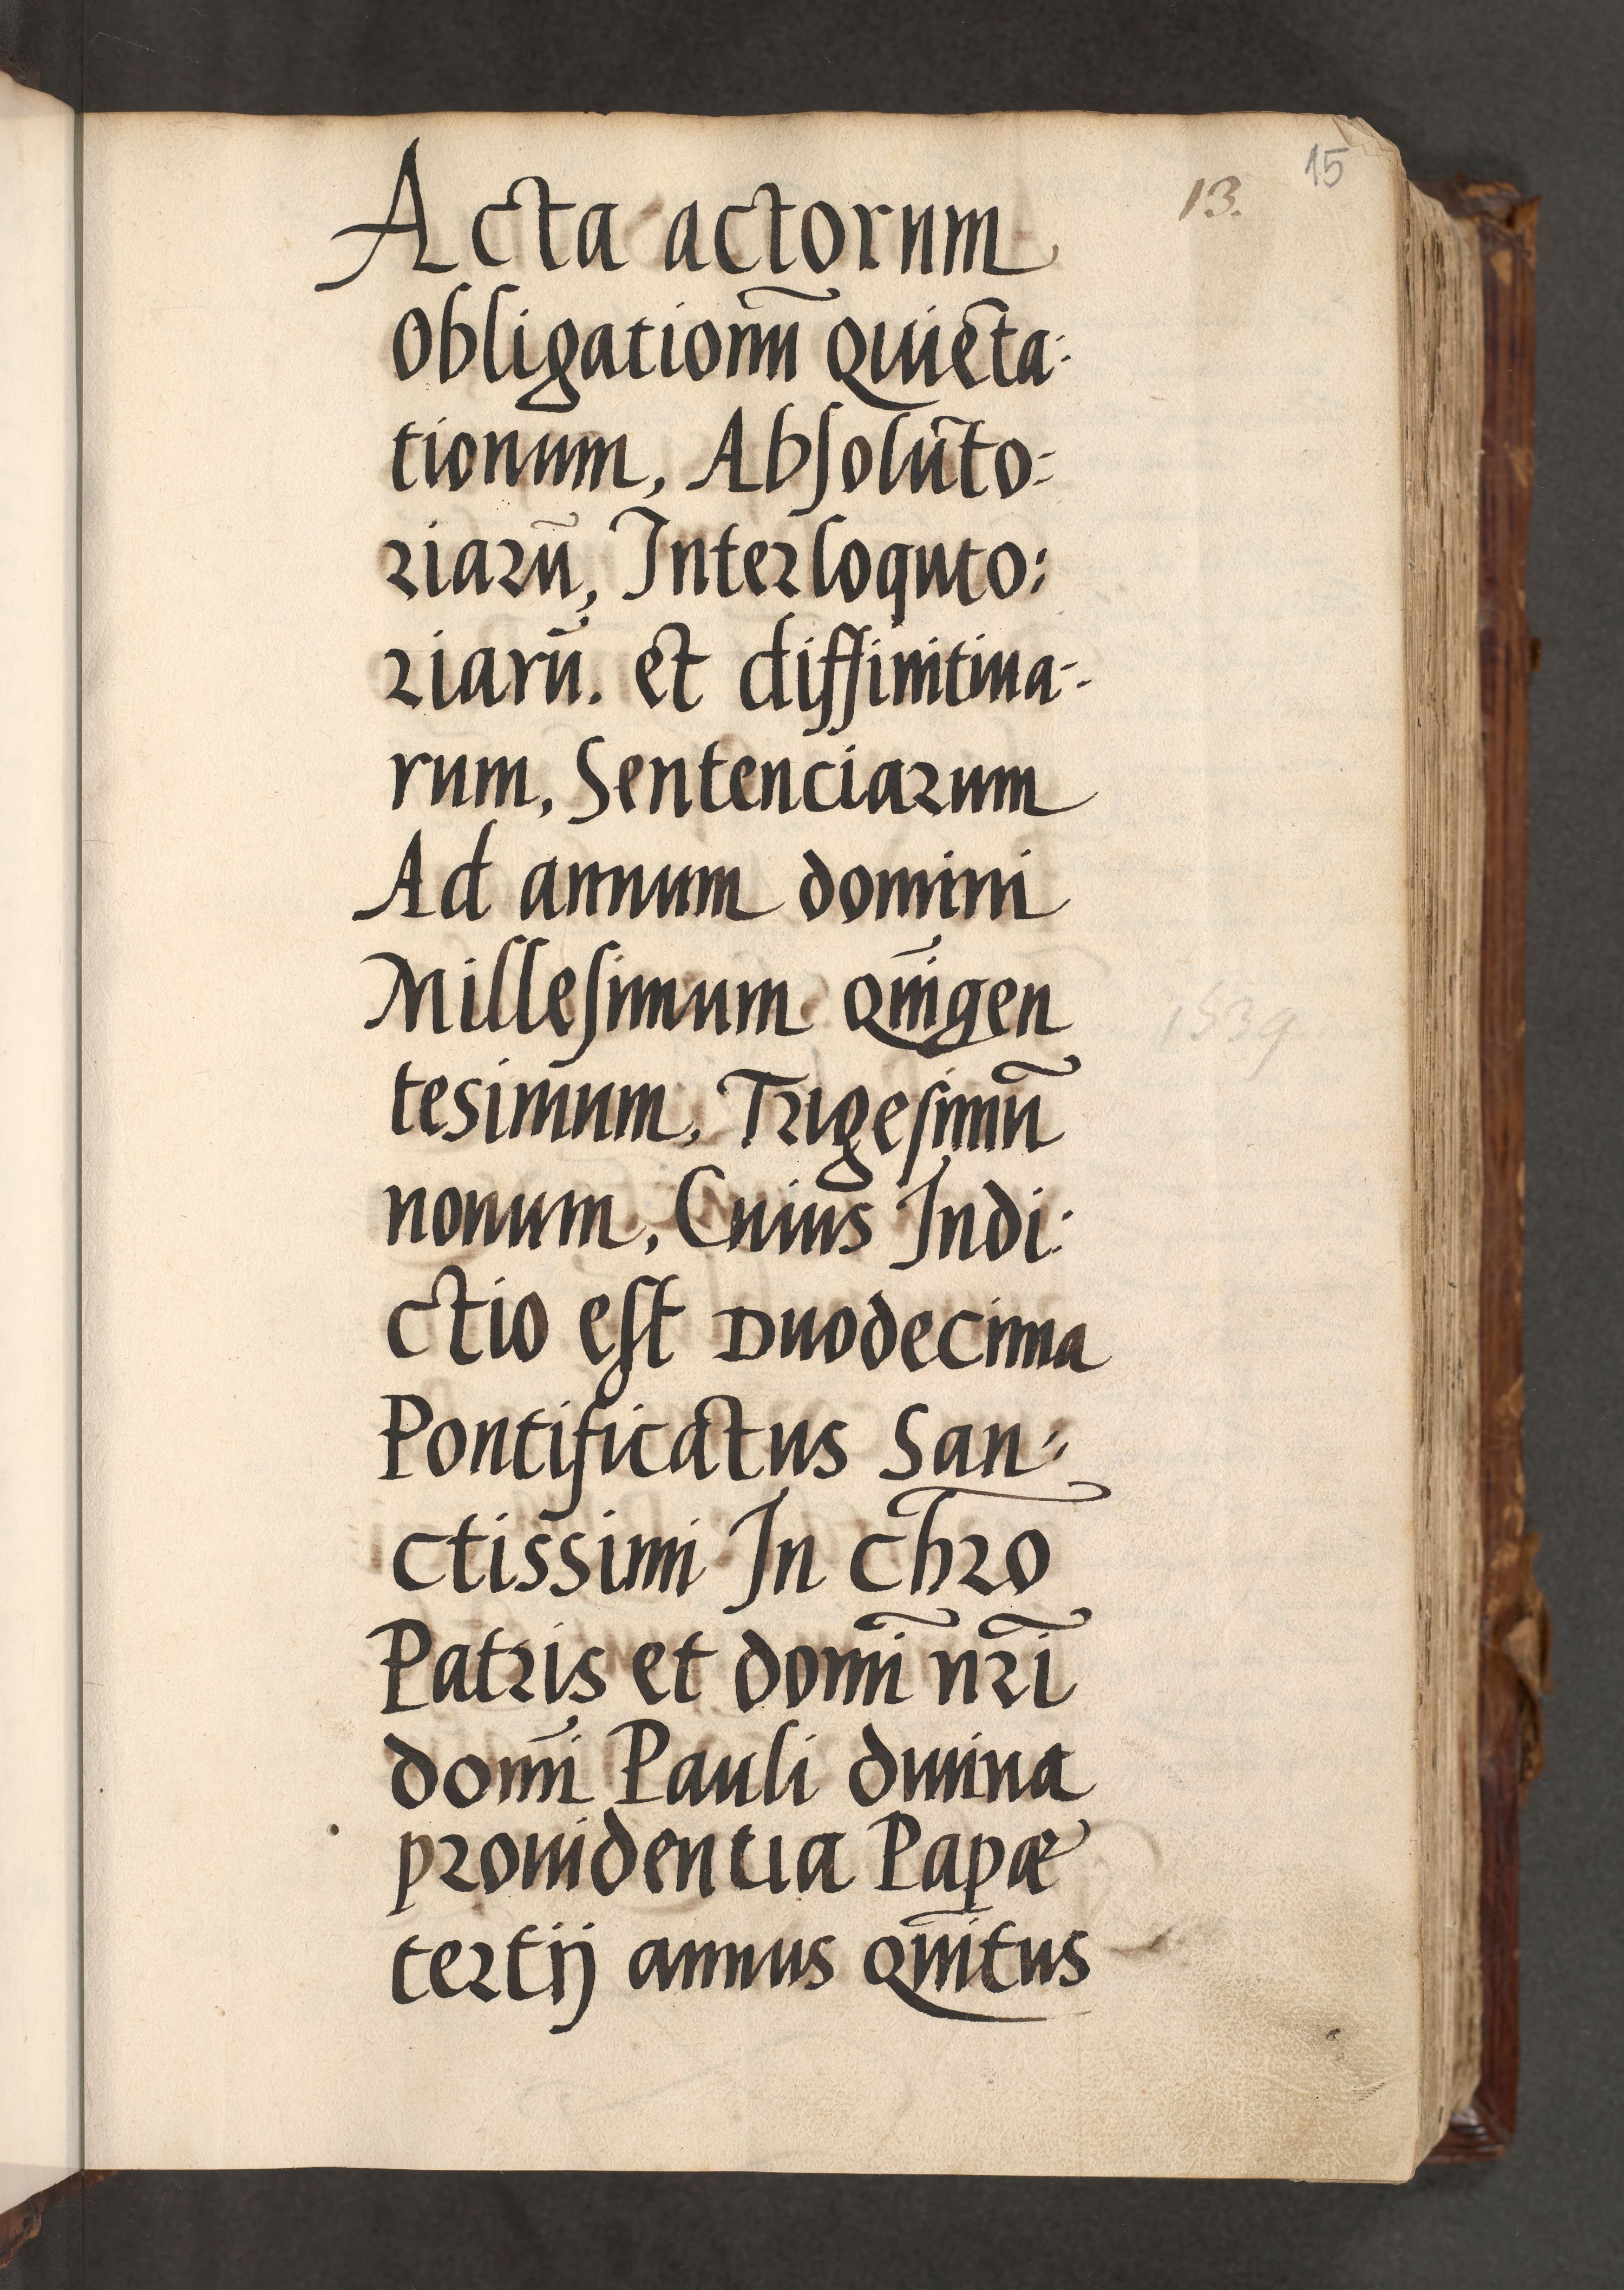 15
13.
Acta actorum
Obligationũ Quieta:
tionum, Absoluto:
riarũ, Interloquto:
riarũ. et diffinitiua-
rum, Sentenciarum
Ad annum domini
Millesimum Qũigen
tesimum, Trigesimũ
nonum, Cuius Indi:
ctio est Duodecima
Pontificatus San:
ctissimi In chr̃o
Patris et domĩ nr̃i
domĩ Pauli diuina
prouidentia Papæ
tertij annus Qũitus
1539